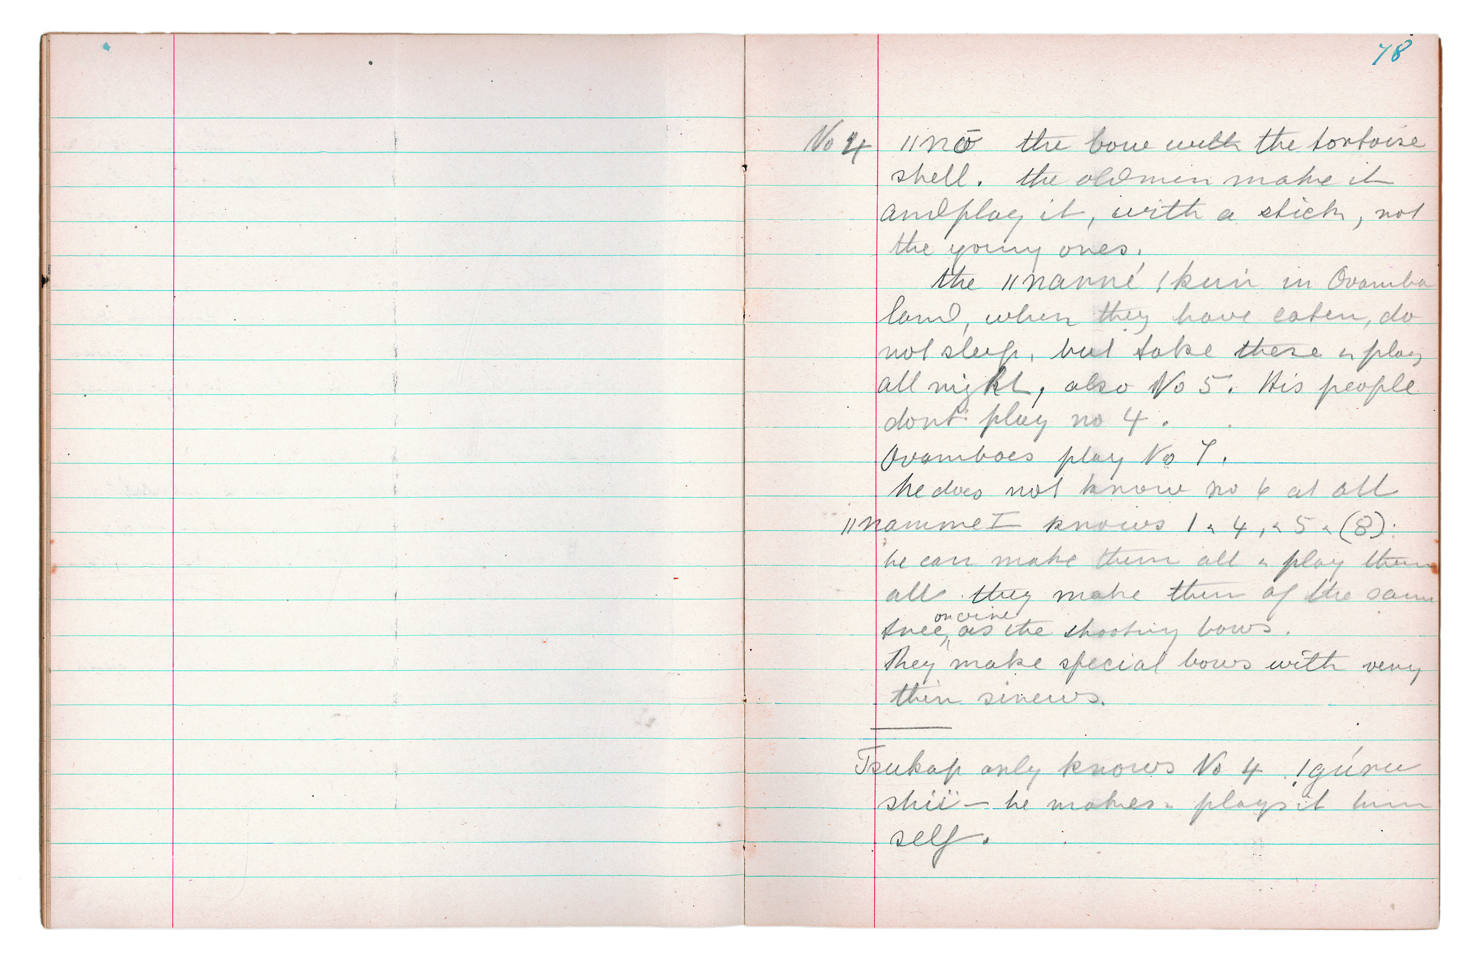 78
No 4 ǁnō the bow with the tortoise
shell. the old men make it
and play it, with a stick, not
the young ones.
the ǁnanné ǀkuir in Ovambo
land, when they have eaten, do
not sleep, but take these & play
all night, also No 5. His people
dont play no 4.
Ovamboes play No 7.
he does not know no 6 at all
ǁnamme I knows 1 & 4, & 5 & (8):
he can make them all & play them
all they make them of the same
tree, as the shooting bows.
They make special bows with very
thin sinews.
Tsukap only knows No 4 !gúru
shiï — he makes & plays it him
self.